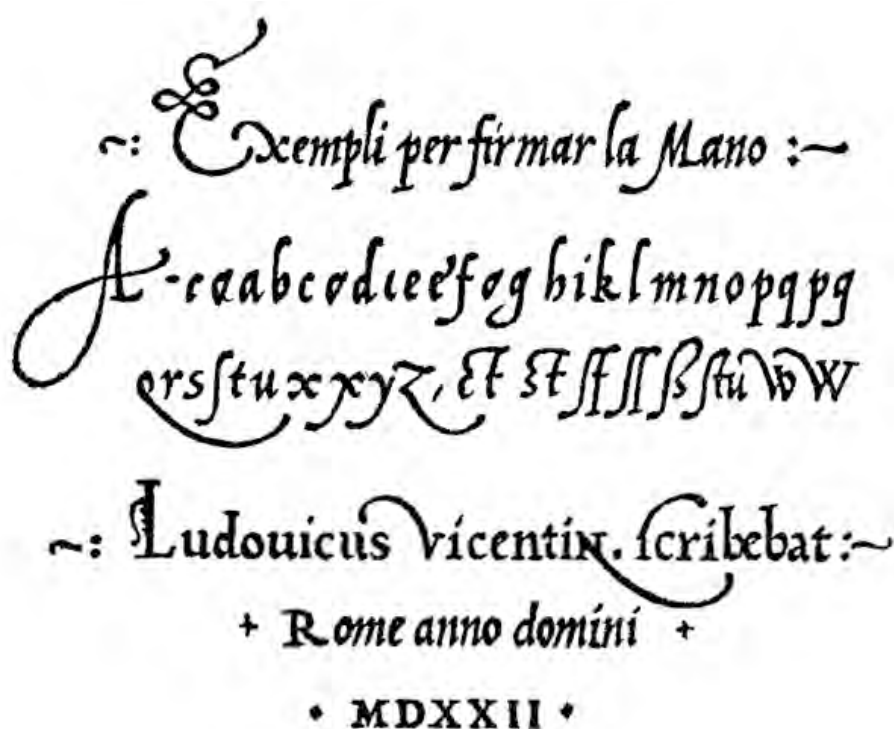 ~: Exempli per firmar la Mano :~
A-cøabcødıeeføg hiklmnopqpg
ersſtuxxyz, ct st ſf ſſ ß ſtu w W
~: Ludouicus Vicentin. ſcribebat :~
+ Rome anno domini +
• MDXXII •